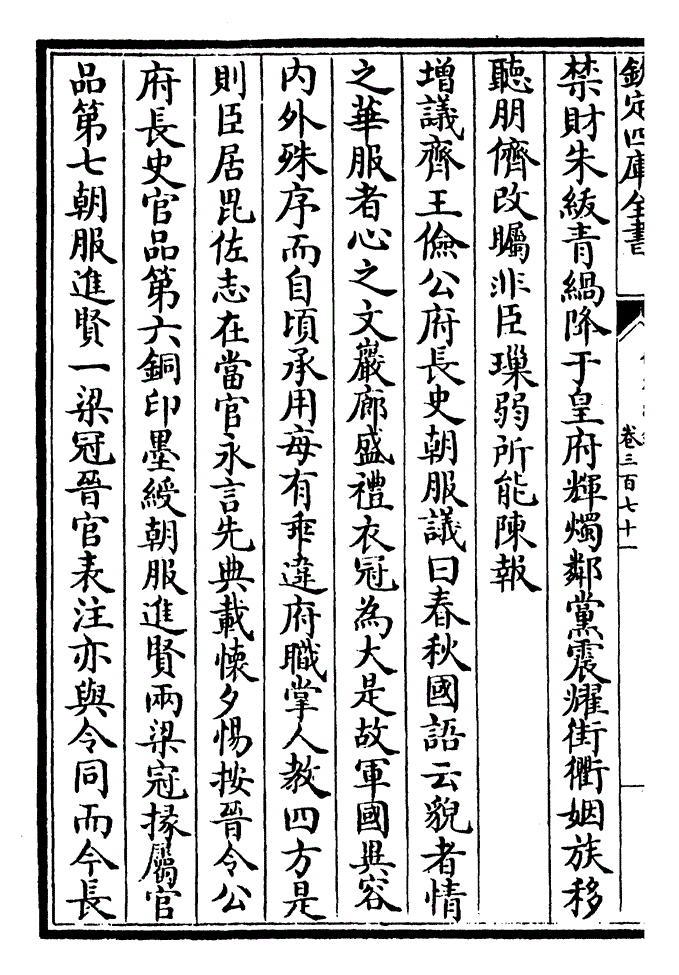 欽定四庫全書
卷三百七十一
禁財朱紱青緺降于皇府輝燭鄰黨震耀街衢姻族移
聽朋儕改矚非臣璅弱所能陳報
增議齊王儉公府長史朝服議曰春秋國語云貌者情
之華服者心之文巖廊盛禮衣冠為大是故軍國異容
内外殊序而自頃承用每有乖違府職掌人教四方是
則臣居毘佐志在當官永言先典載懷夕惕按晉令公
府長史官品第六銅印墨綬朝服進賢兩梁冠掾屬官
品第七朝服進賢一梁冠晉官表注亦與令同而今長